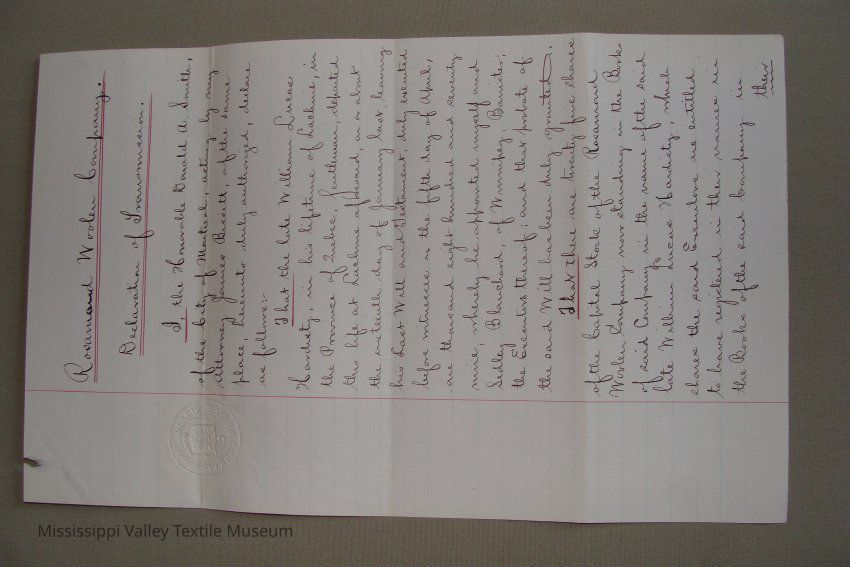 Rosamond Woolen Company.
Declaration of Transmission.
I, the Honorable Donald A. Smith,
of the City of Montreal, acting by my
Attorney James Bissett, of the same
place, hereunto duly authorized, declare
as follows:-
That the late William Lucas
Hardisty, in his lifetime of Lachine, in
the Province of Quebec, Gentleman, departed
this life at Lachine aforesaid, on or about
the sixteenth day of January last, leaving
his Last Will and Testament, duly executed
before witnesses on the fifth day of April,
one thousand eight hundred and seventy
nine, whereby he appointed myself and
Sedley Blanchard, of Winnipeg, Barrister,
the Executors thereof; and that probate of
the said Will has been duly granted.
That there are twenty five shares
of the Capital Stock of the Rosamond
Woolen Company now standing in the Books
of said Company in the name of the said
late William Lucas Hardisty, which
shares the said Executors are entitled
to have registered in their names in
the Books of the said Company in
their
Mississippi Valley Textile Museum